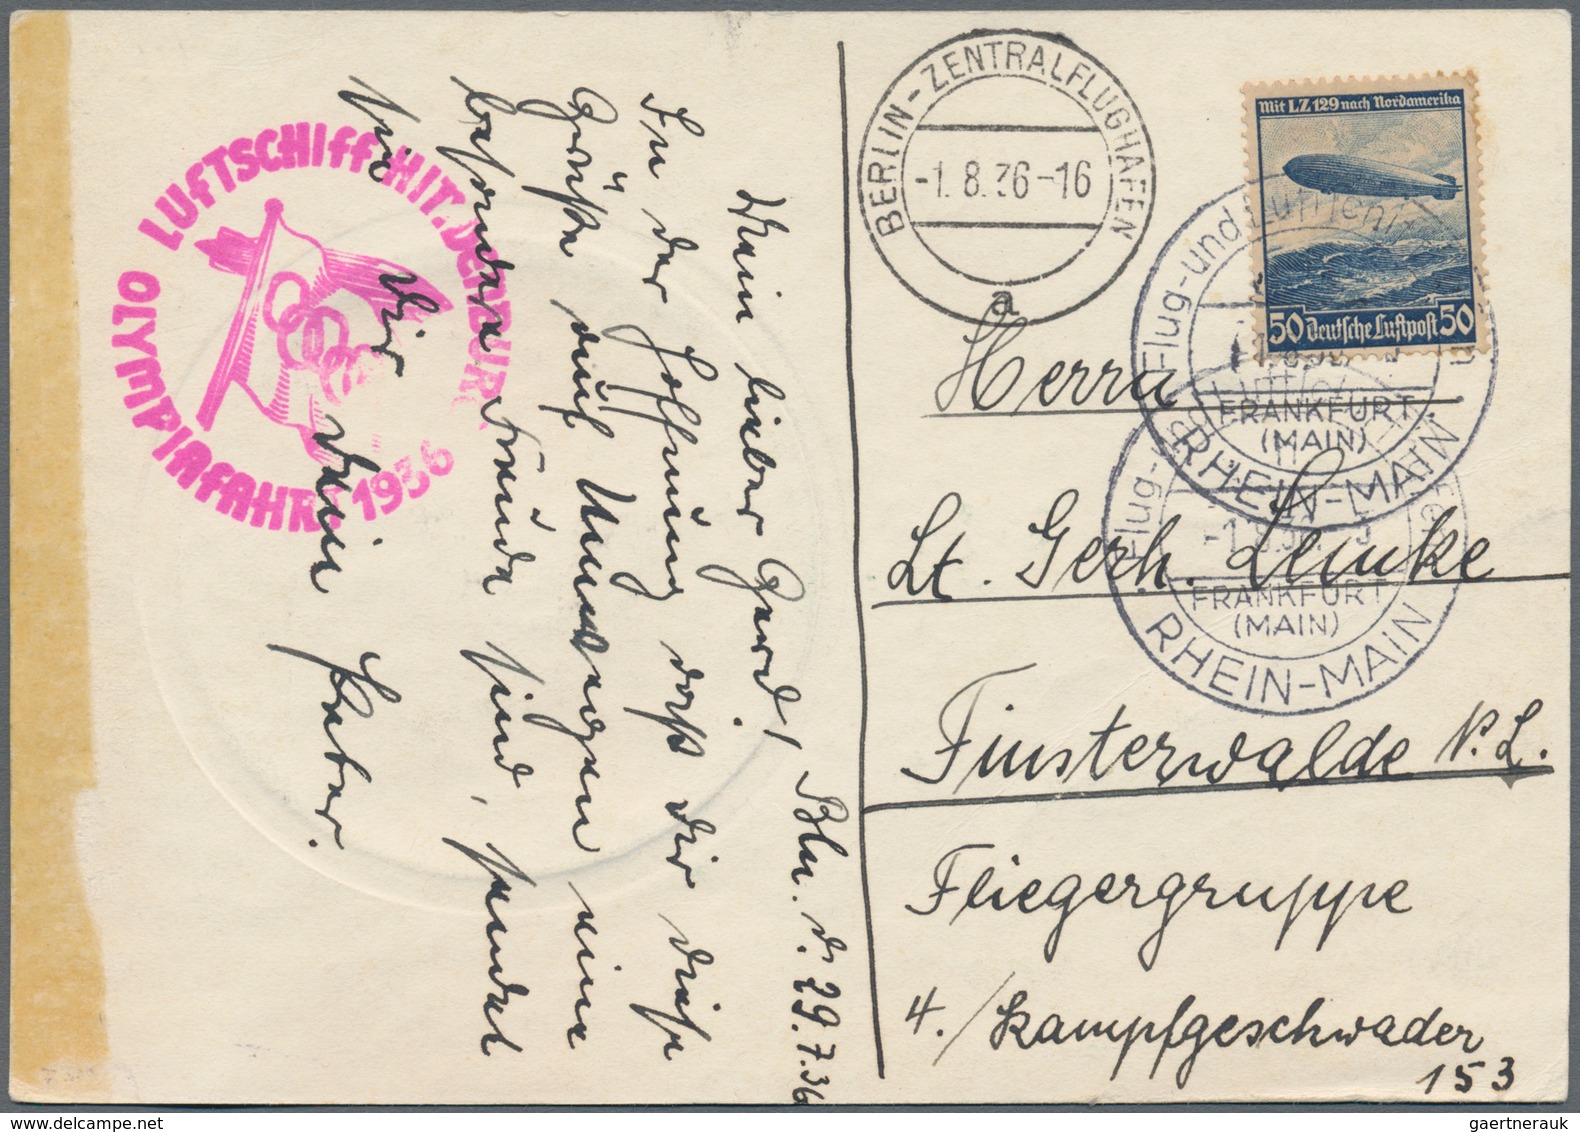 Bln. d. 29.7.36
Mein lieber Gerd!
In der Hoffnung daß dir diese
Grüße auf Umwegen eine
besondere Freude sind, sendet
sie dir dein Vater.
LUFTSCHIFF HINDENBURG
OLYMPIAFAHRT 1936
BERLIN-ZENTRALFLUGHAFEN
-1.8.36-16
a
Mit LZ 129 nach Nordamerika
50 Deutsche Luftpost 50
Flug- und Luftschiff
FRANKFURT
(MAIN)
RHEIN-MAIN
Flug-
FRANKFURT
(MAIN)
RHEIN-MAIN
Herrn
Lt. Gerh. Lemke
Finsterwalde N.L.
Fliegergruppe
4./Kampfgeschwader
153
gaertnerauk @ delcampe.net